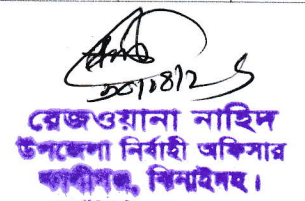 রেজওয়ানা নাহিদ
উপজেলা নির্বাহী অফিসার
কালীগঞ্জ, ঝিনাইদহ।